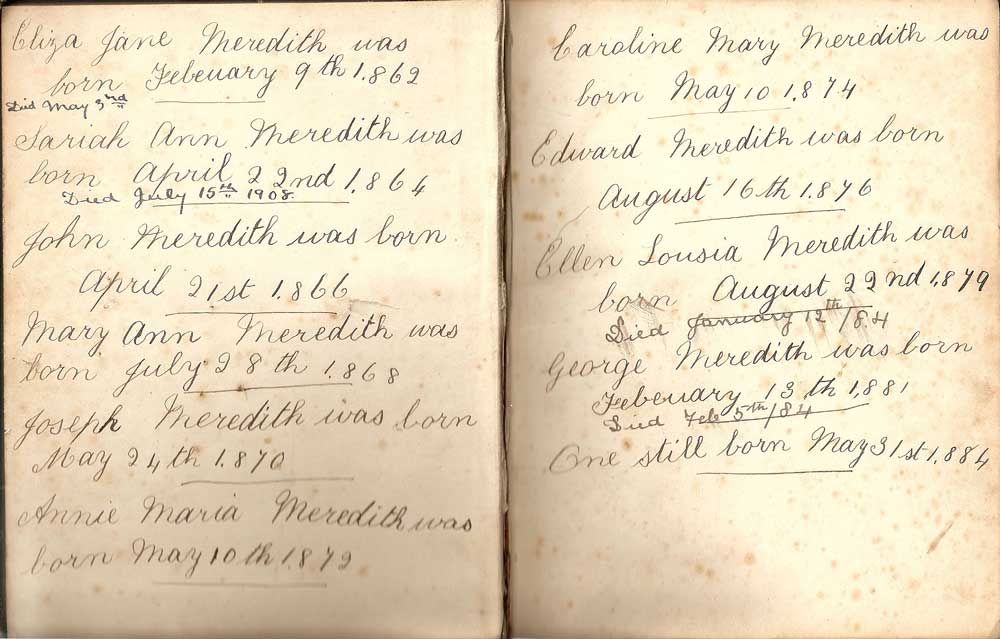 Eliza Jane Meredith was
born Febeuary 9th 1.862
Died May 3rd
Sariah Ann Meredith was
born April 22nd 1.864
Died July 15th 1908.
John Meredith was born
April 21st 1.866
Mary Ann Meredith was
born July 28th 1.868
Joseph Meredith was born
May 24th 1.870
Annie Maria Meredith was
born May 10th 1.872
Caroline Mary Meredith was
born May 10 1.874
Edward Meredith was born
August 16th 1.876
Ellen Lousia Meredith was
born August 22nd 1.879
Died January 12th /84
George Meredith was born
Febeuary 13th 1.881
Died Feb 5th /84
One still born May 31st 1.884